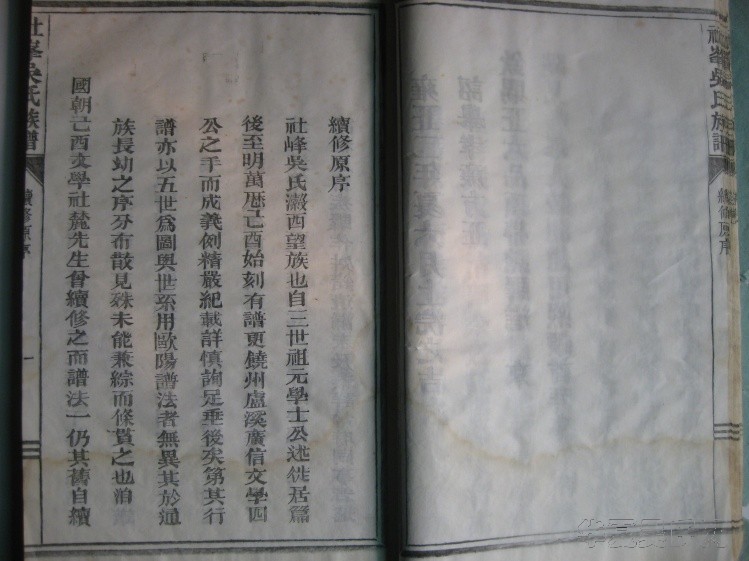 社峯吳氏族譜
續修原序
續修原序
社峰吳氏漵西望族也自三世祖元學士公述徙居篇
後至明萬厯己酉始刻有譜更饒州盧溪廣信文學四
公之手而成義例精嚴紀載詳慎詢足垂後矣第其行
譜亦以五世爲圖與世系用歐陽譜法者無異其於通
族長幼之序分布散見殊未能兼綜而條貫之也洎
國朝己酉文學社麓先生曾續修之而譜法一仍其舊自續
社峯吳氏族譜
續修原序
一